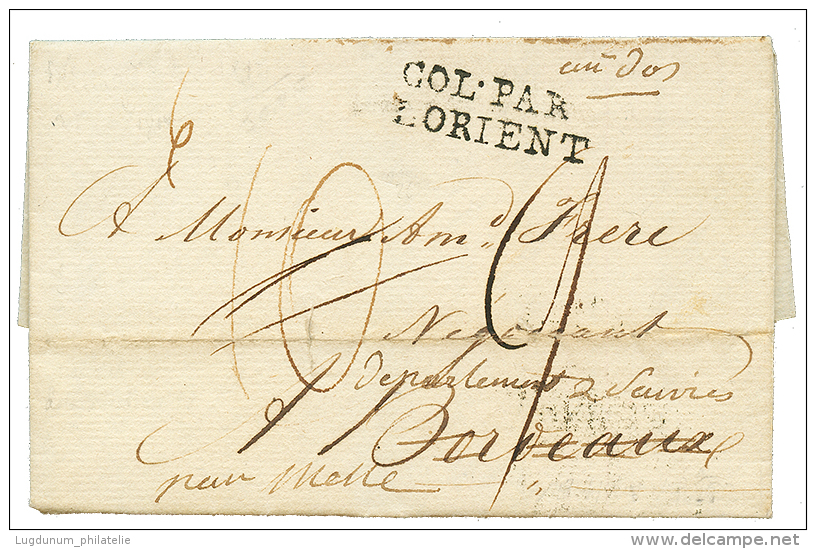 au dos
COL·PAR
LORIENT
A Monsieur Am.d Frere
Négociant
departement 2 Sevres
Bordeaux
par Melle
Lugdunum_philatelie
www.delcampe.net